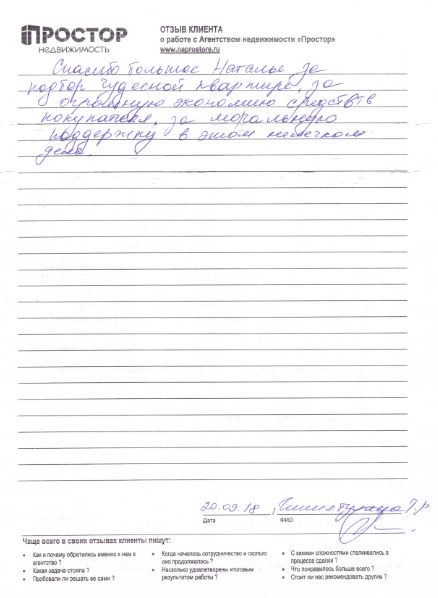 ПРОСТОР
НЕДВИЖИМОСТЬ
ОТЗЫВ КЛИЕНТА
о работе с Агентством недвижимости «Простор»
www.naprostore.ru
Спасибо большое Наталье за
подбор чудесной квартиры, за
огромную экономию средств
покупателя, за моральную
поддержку в этом нелегком
деле.
20.09.18,
Дата
ФИО
Чаще всего в своих отзывах клиенты пишут:
• Как и почему обратились именно к нам в агентство ?
• Какая задача стояла ?
• Пробовали ли решать ее сами ?
• Когда началось сотрудничество и сколько оно продолжалось ?
• Насколько удовлетворены итоговым результатом работы ?
• С какими сложностями сталкивались в процессе сделки ?
• Что понравилось больше всего ?
• Стоит ли нас рекомендовать другим ?